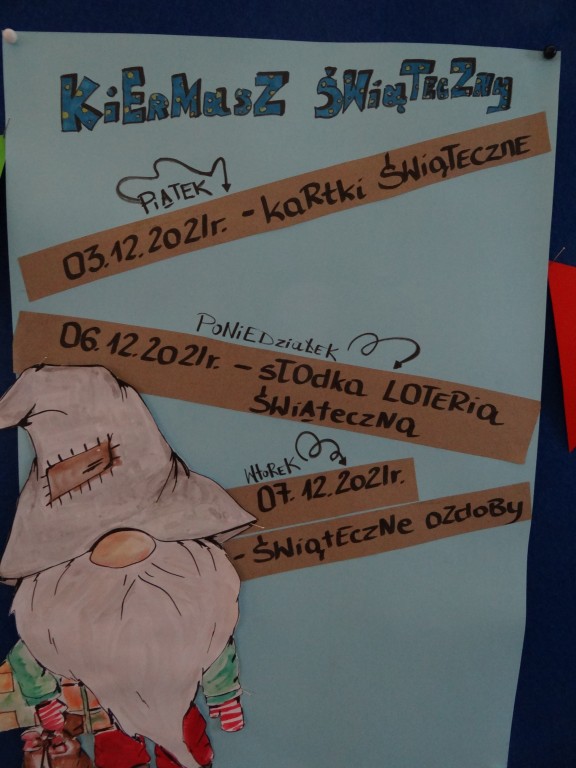 KiErMasZ ŚWiąTecZny
PiĄTEK
03.12.2021r. - kaRtki ŚWiąTECZNE
PONiEDziałEK
06.12.2021r. - słOdka LOTERią
ŚWiĄtecZNĄ
WtOREK
07.12.2021r.
- ŚWiątEcZNe OZdOBy